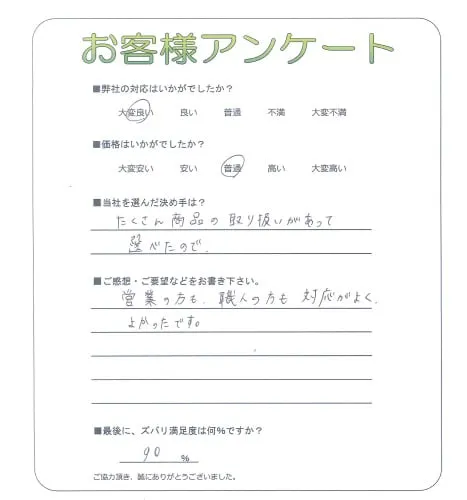 お客様アンケート
■弊社の対応はいかがでしたか？
大変良い 良い 普通 不満 大変不満
■価格はいかがでしたか？
大変安い 安い 普通 高い 大変高い
■当社を選んだ決め手は？
たくさん商品の取り扱いがあって
選べたので.
■ご感想・ご要望などをお書き下さい。
営業の方も、職人の方も 対応がよく、
よかったです。
■最後に、ズバリ満足度は何%ですか？
90 %
ご協力頂き、誠にありがとうございました。